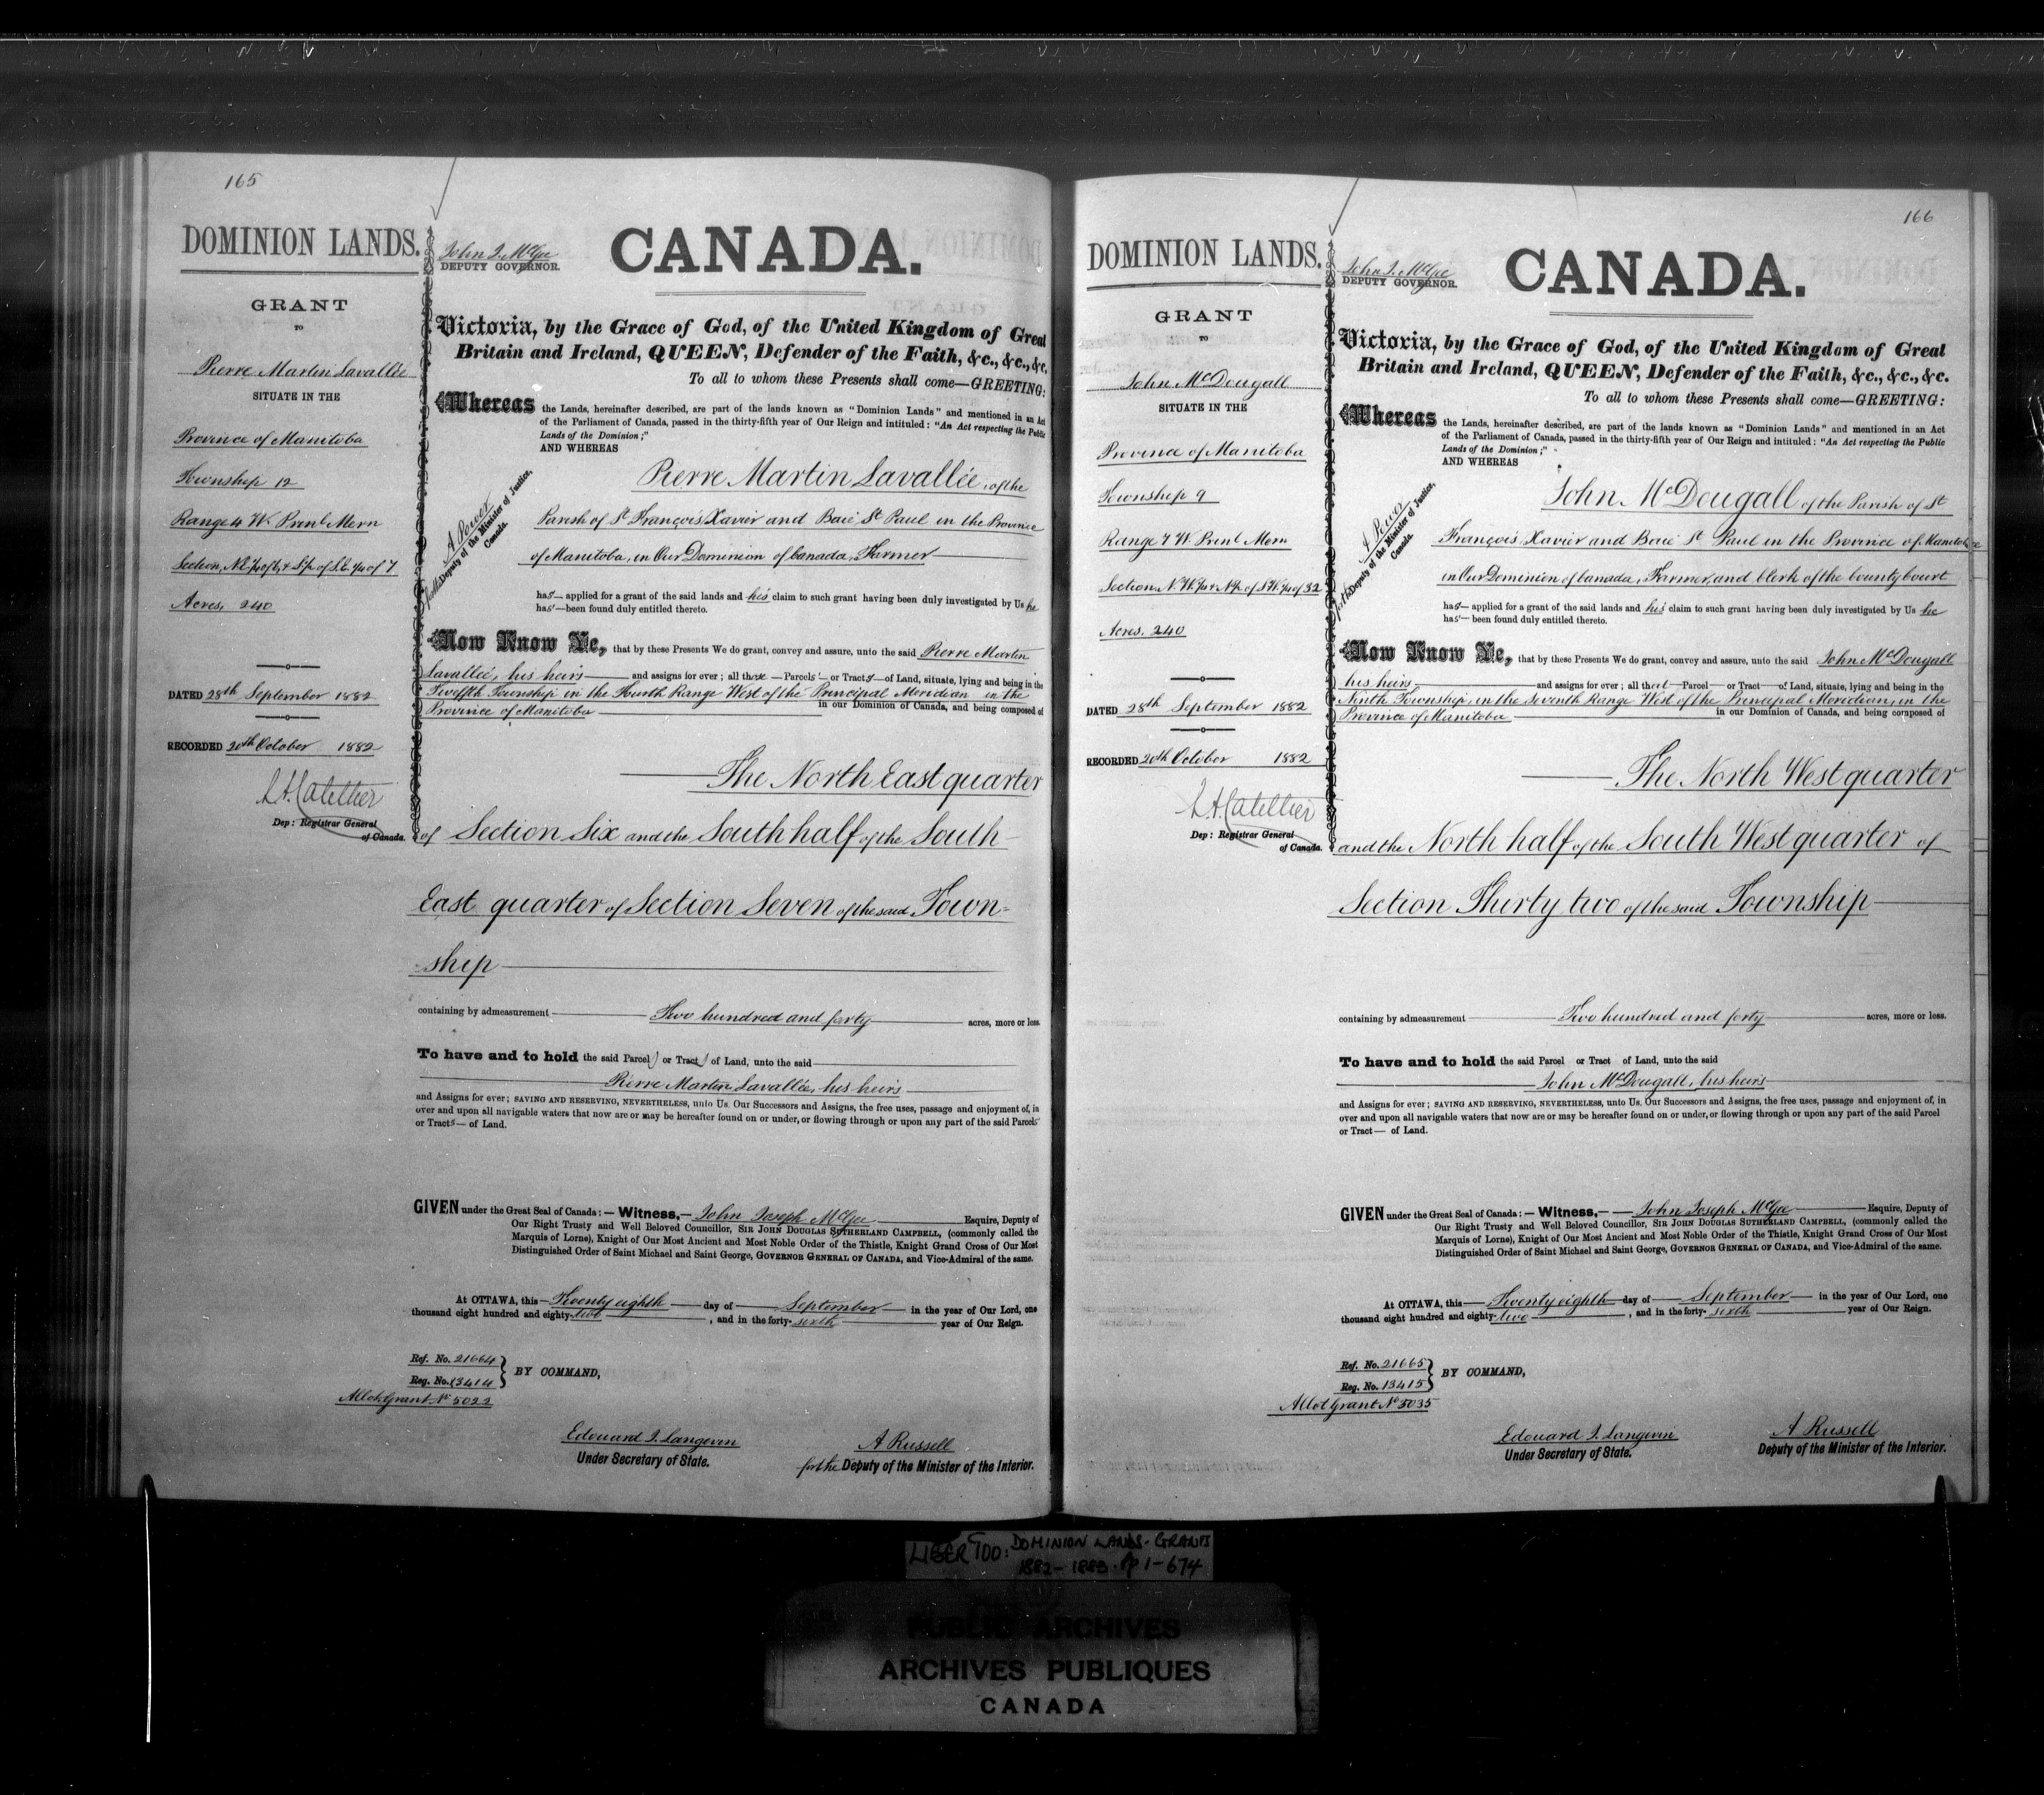 165
DOMINION LANDS.
GRANT
TO
Pierre Martin Lavallée
SITUATE IN THE
Province of Manitoba
Township 12
Range 4 W. Prinl Mern
Section, N.E. ¼ of 6, & S½ of S.E. ¼ of 7
Acres, 240
DATED 28th September 1882
RECORDED 20th October 1882
Dep: Registrar General
of Canada.
John J. McGee
DEPUTY GOVERNOR.
CANADA.
Victoria, by the Grace of God, of the United Kingdom of Great
Britain and Ireland, QUEEN, Defender of the Faith, &c., &c., &c.
To all to whom these Presents shall come—GREETING:
Whereas the Lands, hereinafter described, are part of the lands known as "Dominion Lands" and mentioned in an Act
of the Parliament of Canada, passed in the thirty-fifth year of Our Reign and intituled: "An Act respecting the Public
Lands of the Dominion;"
AND WHEREAS
A Power
for the Deputy of the Minister of Justice,
Canada.
Pierre Martin Lavallée, of the
Parish of St François Xavier and Baie St Paul in the Province
of Manitoba, in Our Dominion of Canada, Farmer
has— applied for a grant of the said lands and his claim to such grant having been duly investigated by Us he
has—been found duly entitled thereto.
Now Know Ye, that by these Presents We do grant, convey and assure, unto the said Pierre Martin
Lavallée, his heirs — and assigns for ever; all those — Parcels — or Tracts — of Land, situate, lying and being in the
Twelfth Township in the Fourth Range West of the Principal Meridian in the
Province of Manitoba — in our Dominion of Canada, and being composed of
The North East quarter
of Section Six and the South half of the South
East quarter of Section Seven of the said Town=
ship
containing by admeasurement — Two hundred and forty — acres, more or less.
To have and to hold the said Parcels or Tracts of Land, unto the said
Pierre Martin Lavallée, his heirs
and Assigns for ever; SAVING AND RESERVING, NEVERTHELESS, unto Us. Our Successors and Assigns, the free uses, passage and enjoyment of, in
over and upon all navigable waters that now are or may be hereafter found on or under, or flowing through or upon any part of the said Parcels
or Tracts — of Land.
GIVEN under the Great Seal of Canada: — Witness, — John Joseph McGee — Esquire, Deputy of
Our Right Trusty and Well Beloved Councillor, SIR JOHN DOUGLAS SUTHERLAND CAMPBELL, (commonly called the
Marquis of Lorne), Knight of Our Most Ancient and Most Noble Order of the Thistle, Knight Grand Cross of Our Most
Distinguished Order of Saint Michael and Saint George, GOVERNOR GENERAL OF CANADA, and Vice-Admiral of the same.
At OTTAWA, this — Twenty eighth — day of — September — in the year of Our Lord, one
thousand eight hundred and eighty-two —, and in the forty-sixth — year of Our Reign.
Ref. No. 21664
Reg. No. 13414
BY COMMAND,
Allot Grant No 5022
Edouard J. Langevin
Under Secretary of State.
A Russell
for the Deputy of the Minister of the Interior.
166
DOMINION LANDS.
GRANT
TO
John McDougall
SITUATE IN THE
Province of Manitoba
Township 9
Range 7 W Prinl Mern
Section, N.W. ¼ & N½ of S.W. ¼ of 32
Acres, 240
DATED 28th September 1882
RECORDED 20th October 1882
Dep: Registrar General
of Canada.
John J. McGee
DEPUTY GOVERNOR.
CANADA.
Victoria, by the Grace of God, of the United Kingdom of Great
Britain and Ireland, QUEEN, Defender of the Faith, &c., &c., &c.
To all to whom these Presents shall come—GREETING:
Whereas the Lands, hereinafter described, are part of the lands known as "Dominion Lands" and mentioned in an Act
of the Parliament of Canada, passed in the thirty-fifth year of Our Reign and intituled: "An Act respecting the Public
Lands of the Dominion;"
AND WHEREAS
A Power
for the Deputy of the Minister of Justice,
Canada.
John McDougall of the Parish of St
François Xavier and Baie St Paul in the Province of Manitoba
in Our Dominion of Canada, Farmer, and Clerk of the County Court
has— applied for a grant of the said lands and his claim to such grant having been duly investigated by Us he
has—been found duly entitled thereto.
Now Know Ye, that by these Presents We do grant, convey and assure, unto the said John McDougall
his heirs — and assigns for ever; all that — Parcel — or Tract — of Land, situate, lying and being in the
Ninth Township in the Seventh Range West of the Principal Meridian, in the
Province of Manitoba — in our Dominion of Canada, and being composed of
The North West quarter
and the North half of the South West quarter of
Section Thirty two of the said Township
containing by admeasurement — Two hundred and forty — acres, more or less.
To have and to hold the said Parcel or Tract of Land, unto the said
John McDougall, his heirs
and Assigns for ever; SAVING AND RESERVING, NEVERTHELESS, unto Us. Our Successors and Assigns, the free uses, passage and enjoyment of, in
over and upon all navigable waters that now are or may be hereafter found on or under, or flowing through or upon any part of the said Parcel
or Tract — of Land.
GIVEN under the Great Seal of Canada: — Witness, — John Joseph McGee — Esquire, Deputy of
Our Right Trusty and Well Beloved Councillor, SIR JOHN DOUGLAS SUTHERLAND CAMPBELL, (commonly called the
Marquis of Lorne), Knight of Our Most Ancient and Most Noble Order of the Thistle, Knight Grand Cross of Our Most
Distinguished Order of Saint Michael and Saint George, GOVERNOR GENERAL OF CANADA, and Vice-Admiral of the same.
At OTTAWA, this — Twenty eighth — day of — September — in the year of Our Lord, one
thousand eight hundred and eighty-two —, and in the forty-sixth — year of Our Reign.
Ref. No. 21665
Reg. No. 13415
BY COMMAND,
Allot Grant No 5035
Edouard J. Langevin
Under Secretary of State.
A Russell
Deputy of the Minister of the Interior.
LIBER 700: DOMINION LANDS-GRANTS
1882-1883. Pp 1-674
PUBLIC ARCHIVES
ARCHIVES PUBLIQUES
CANADA